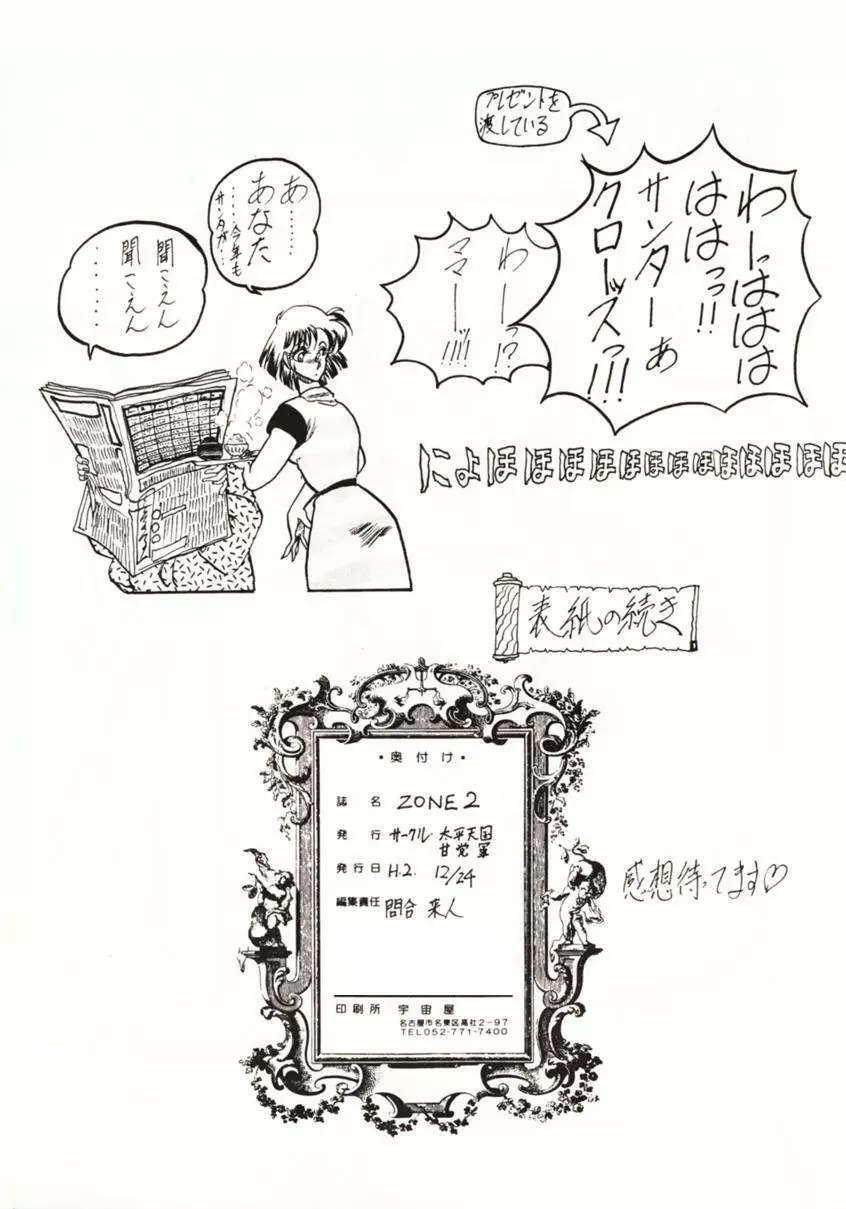 プレゼントを
渡している
わーっははは
ははっっ!!
サンターぁ
クロ―ッスっ!!!
わーっ!?
ママーッ!!!!
あ……
あなた
……今年も
サンタが…
聞こえん
聞こえん
……
にょほほほほほほほほほほほほ
表紙の続き
・奥付け・
誌名 ZONE2
発行 サークル・太平天国
甘党軍
発行日 H.2. 12/24
編集責任 問合 来人
印刷所 宇宙屋
名古屋市名東区高社2-97
TEL052-771-7400
感想待ってます♡